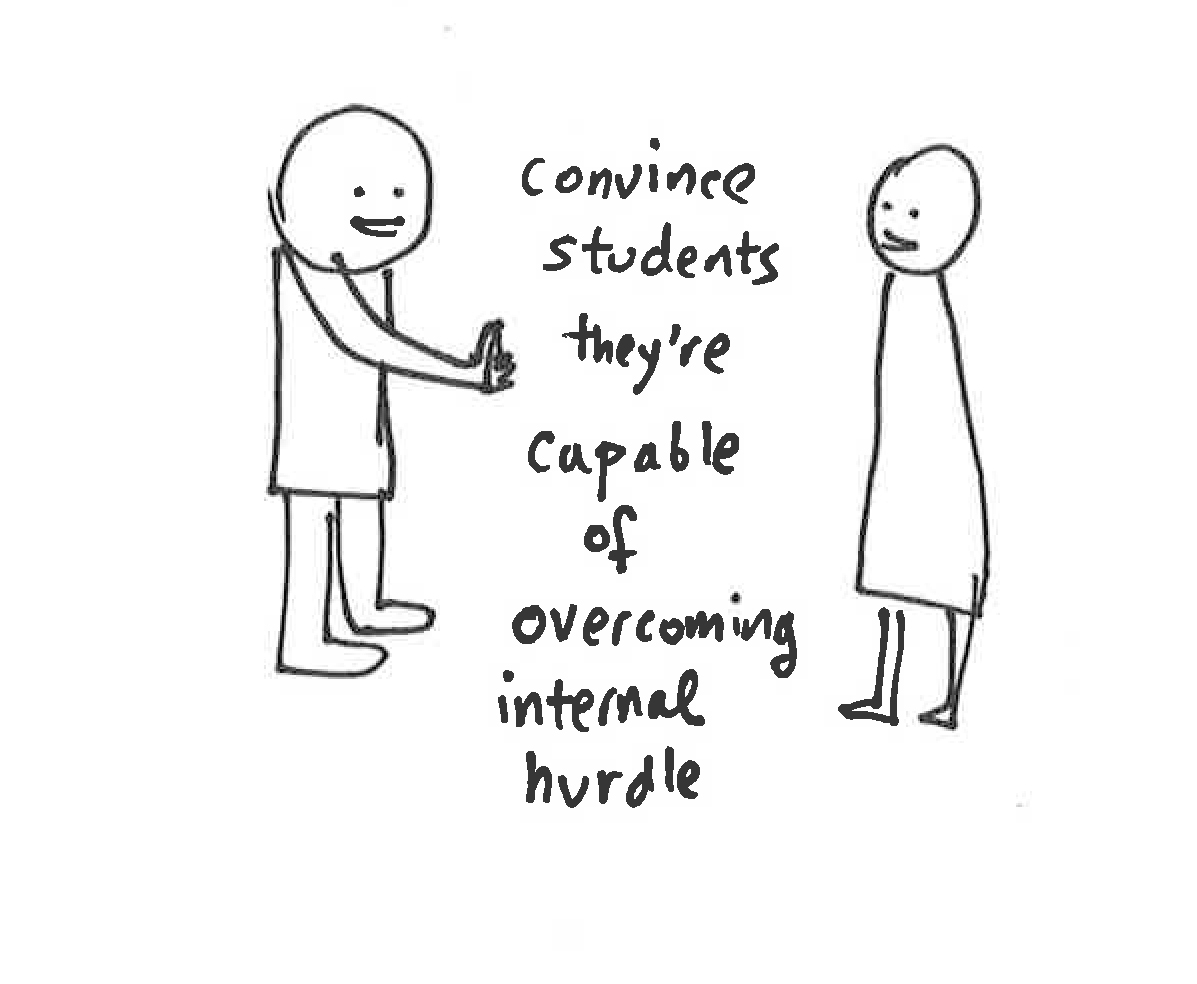 convince
students
they're
capable
of
overcoming
internal
hurdle